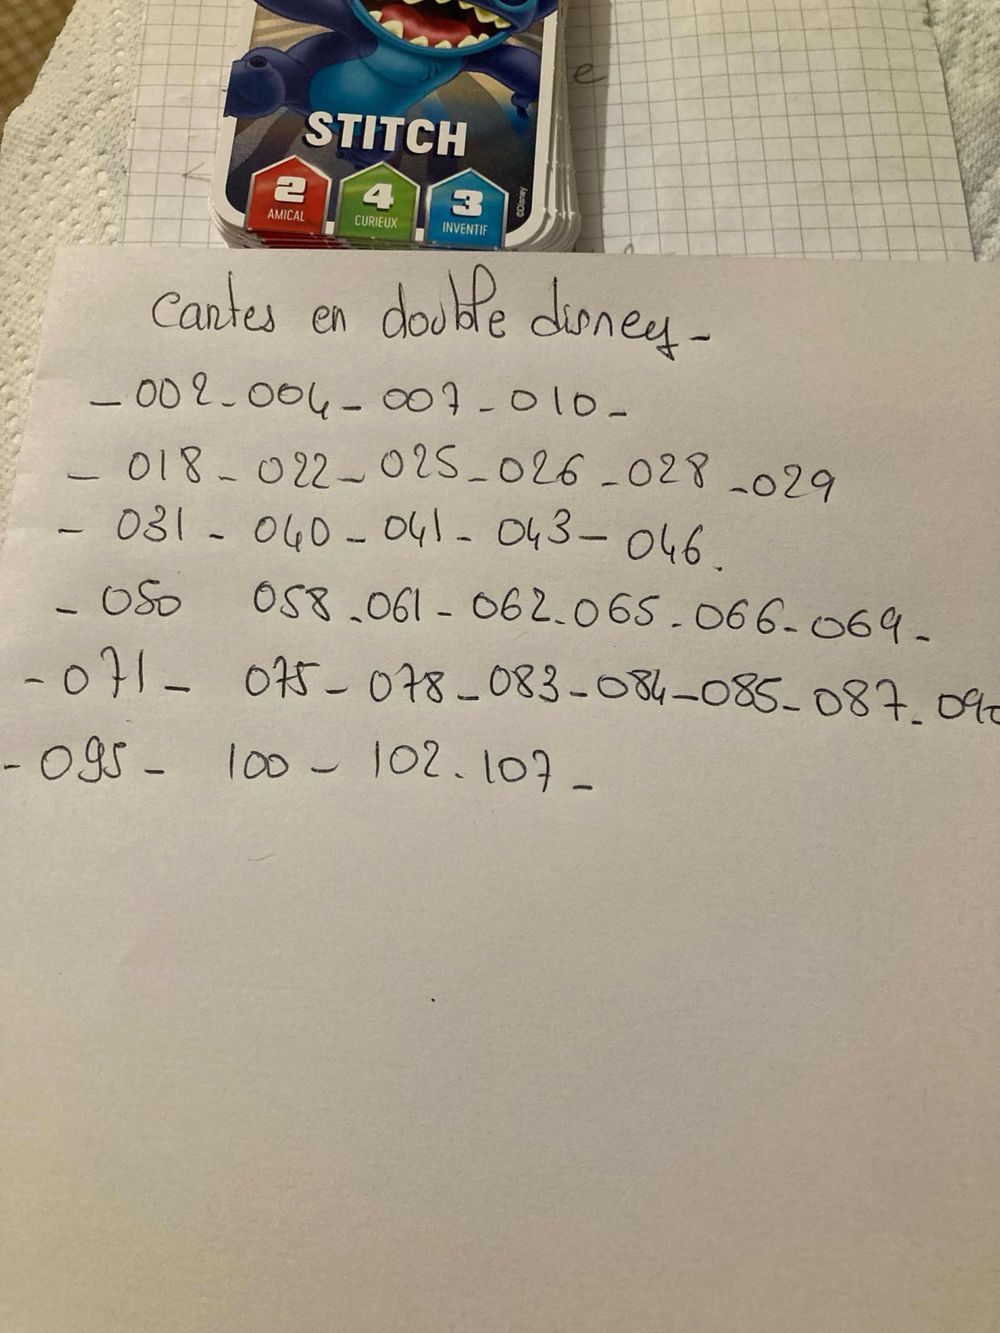 e
STITCH
2 4 3
AMICAL CURIEUX INVENTIF
©Disney
Cartes en double disney-
- 002 - 004 - 007 - 010 -
- 018 - 022 - 025 - 026 - 028 - 029
- 031 - 040 - 041 - 043 - 046.
- 050 058 . 061 - 062 . 065 . 066 - 069 -
- 071 - 075 - 078 - 083 - 084 - 085 - 087 . 090
- 095 - 100 - 102 . 107 -